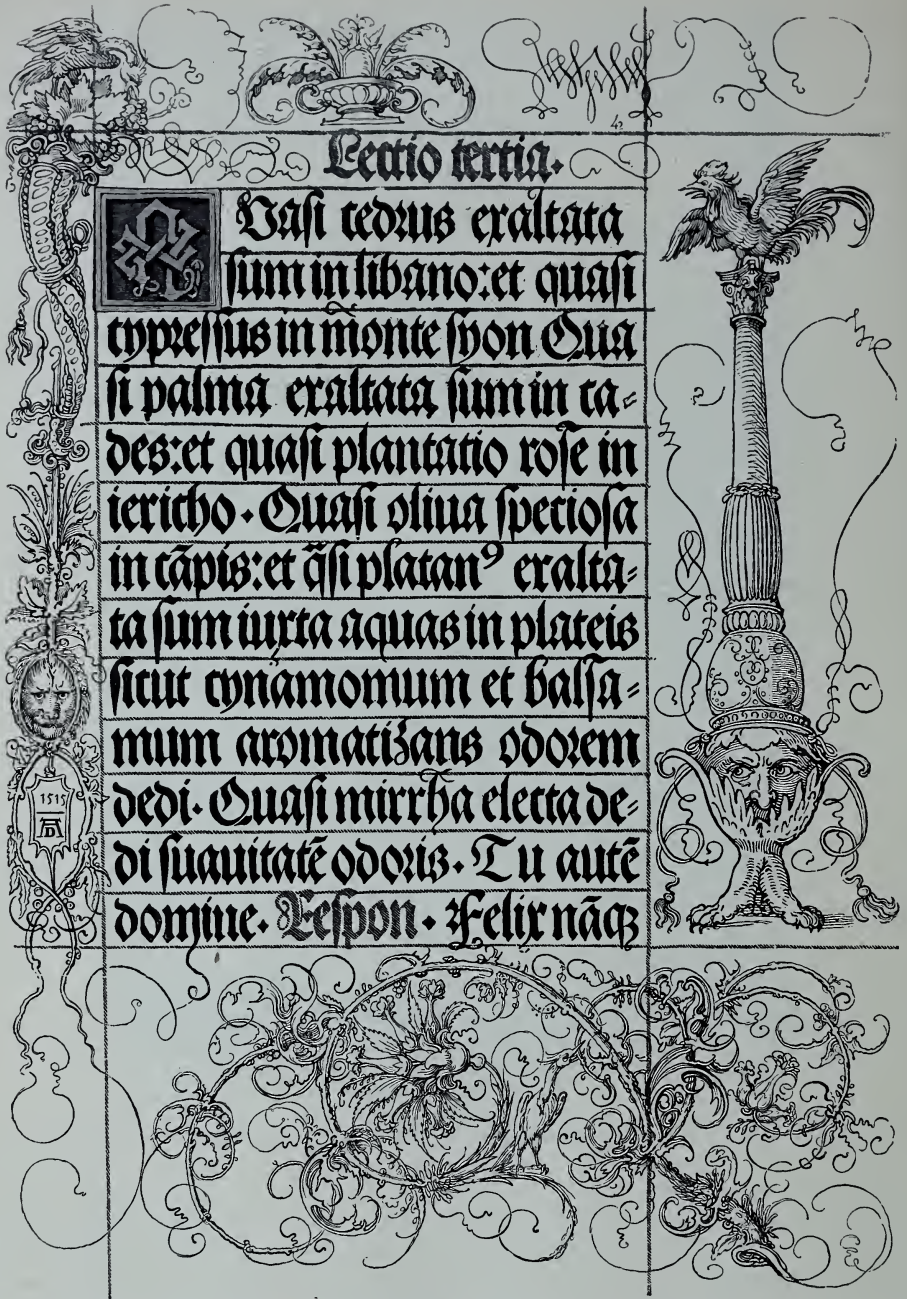 4.
Lectio tertia.
QVasi cedrus exaltata
sum in libano: et quasi
cypressus in monte syon Qua
si palma exaltata sum in ca=
des: et quasi plantatio rose in
iericho. Quasi oliua speciosa
in cãpis: et q̃si platanꝰ exalta=
ta sum iuxta aquas in plateis
sicut cynamomum et balsa=
mum aromatizans odorem
dedi. Quasi mirrha electa de=
di suauitatẽ odoris. Tu autẽ
domine. Respon. Felix nãqꝫ
1515
AD